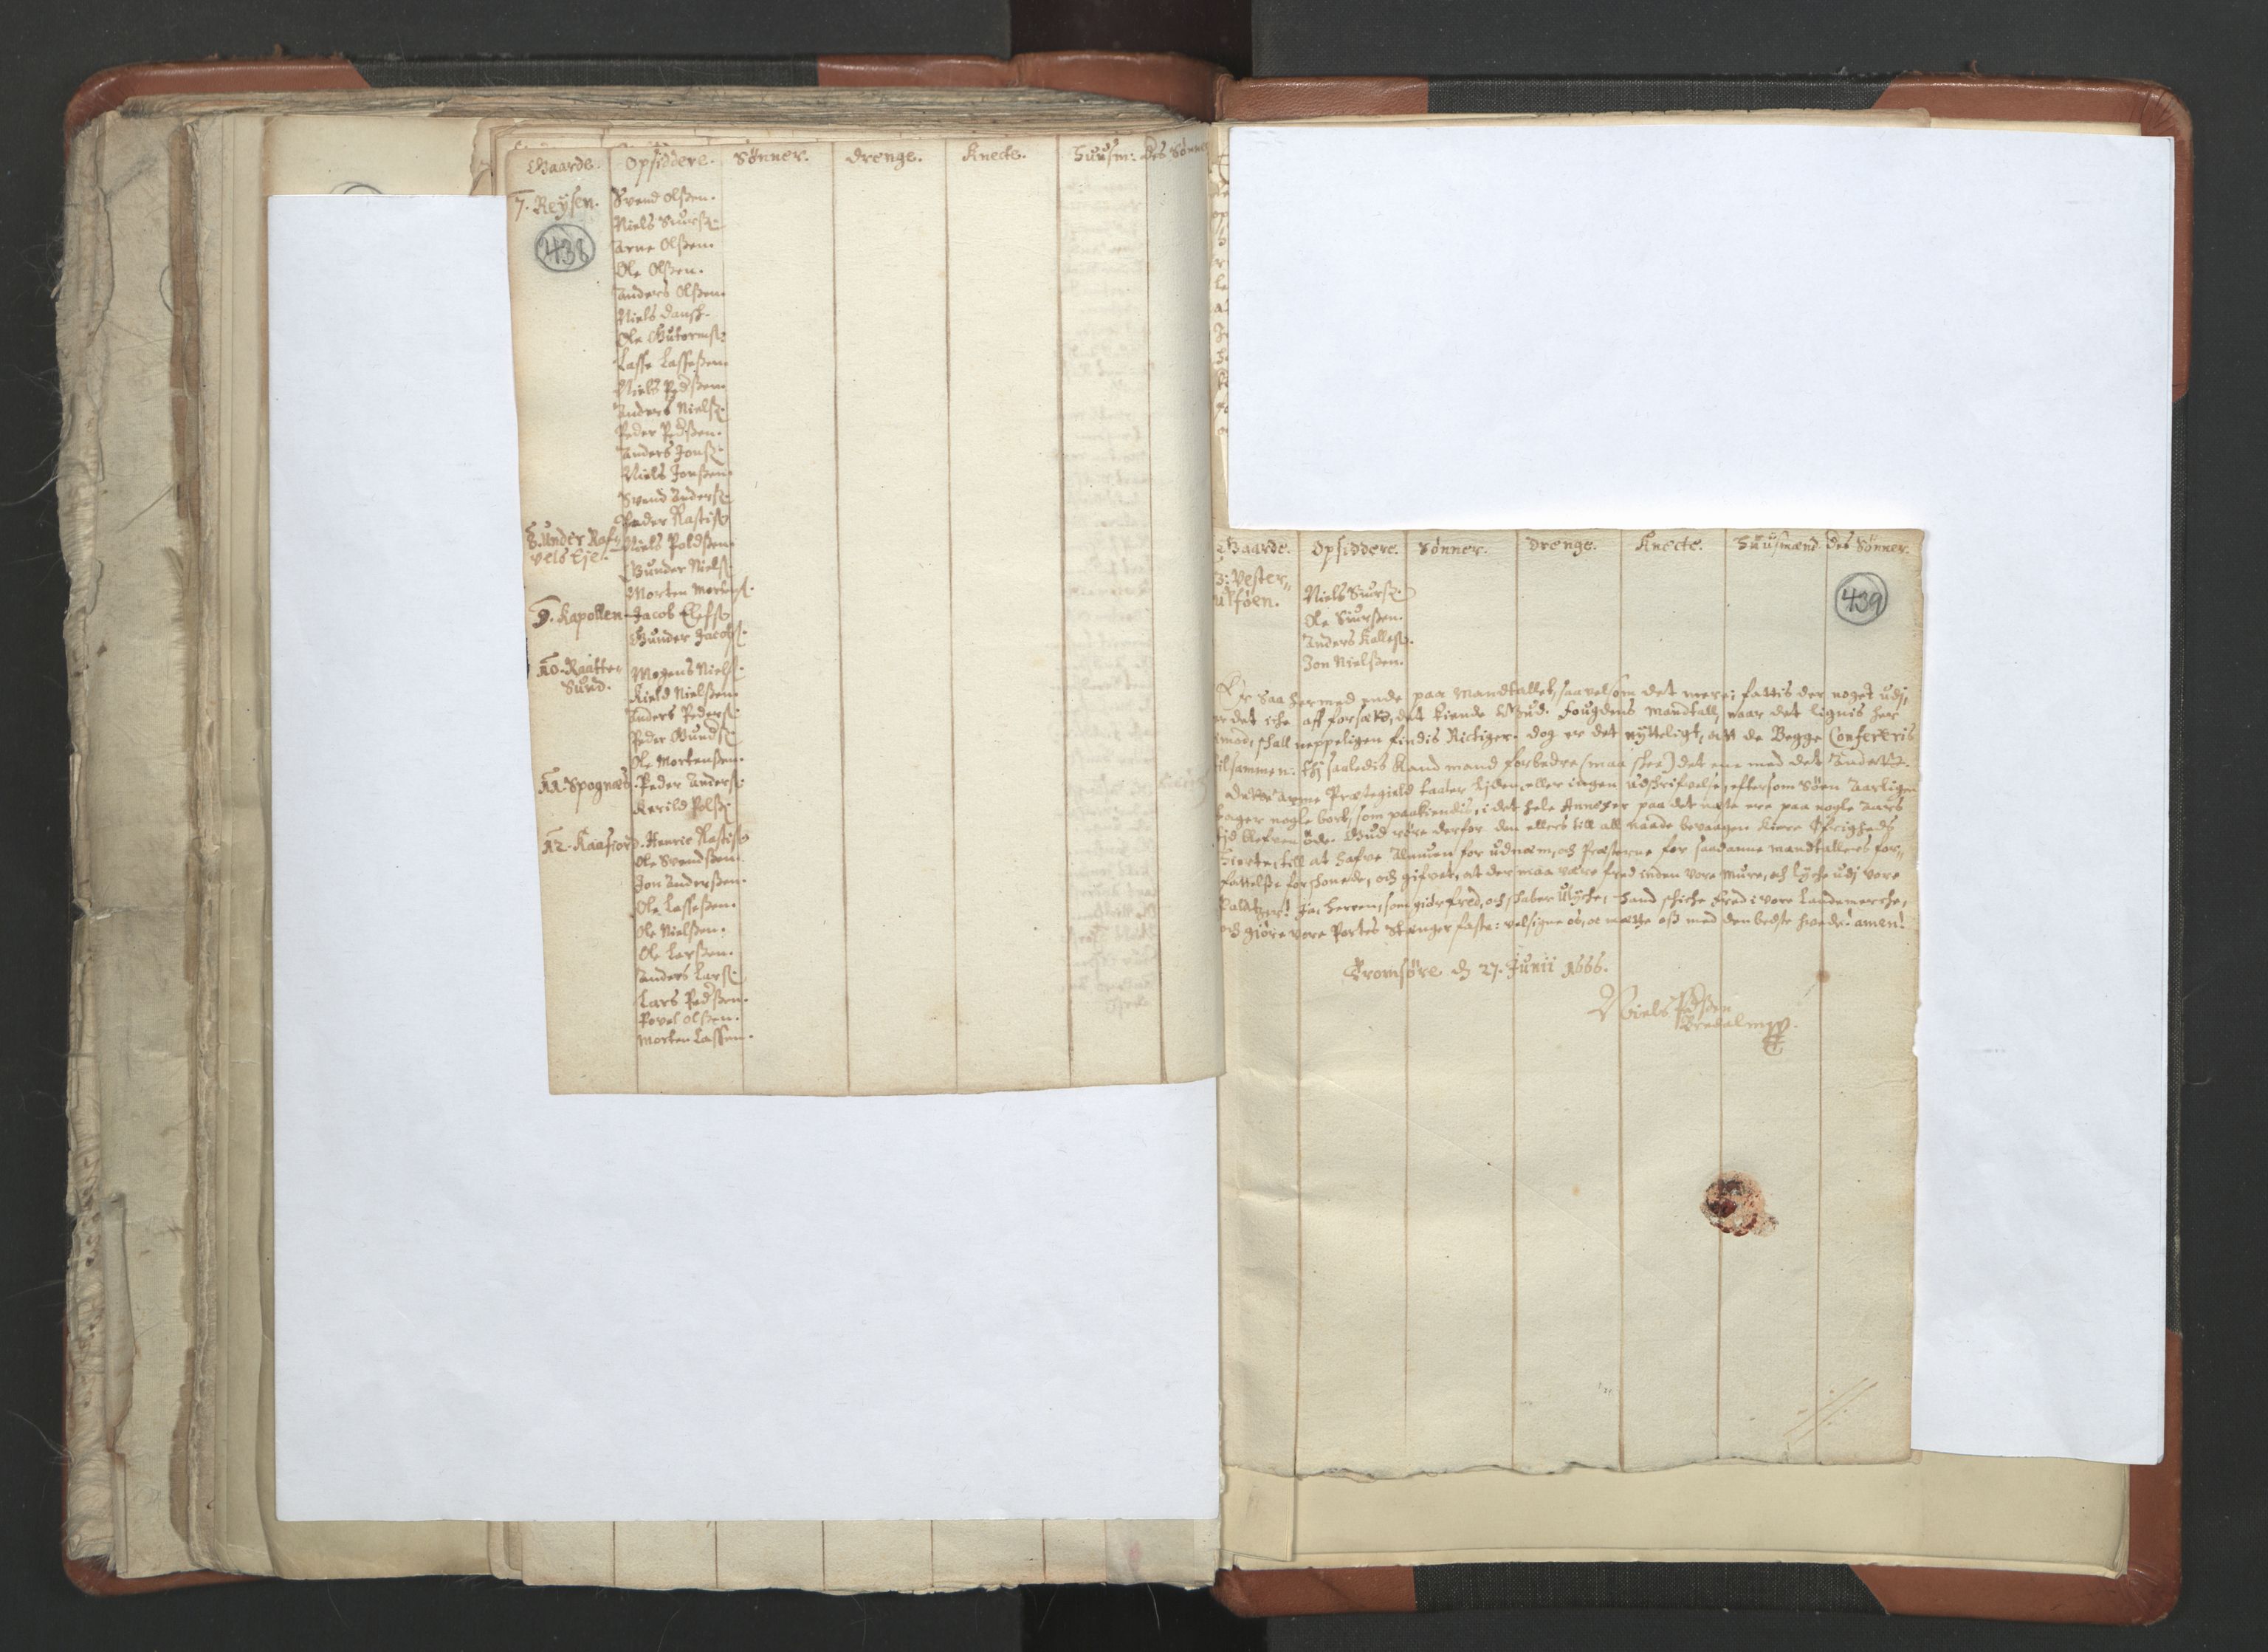 Gaarde. Opsiddere. Sønner. Drenge. Knecte. Huusm: Des Sønner
7. Reysen. Svend Olßen.
438
Niels Siurß:
Arne Olßen.
Ole Olßen.
Anders Olßen.
Niels Dansk.
Ole Guttormß:
Lasse Lasseßen.
Niels Pedßen.
Anders Nielß:
Peder Pedßen.
Anders Jonß:
Niels Jonßen.
Svend Anderß:
Peder Rastiß
8. Under Raf- Niels Poldßen.
vels Eje. Gunder Nielß:
Morten Mortenß.
9. Kapollen Jacob Elefß
Gunder Jacobß.
10. Raatte Mogens Nielß.
Sund. Kield Nielßen.
Anders Pederß:
Peder Gundß:
Ole Mortenßen.
11. Spognæs. Peder Anderß:
Kerild Polß:
12. Kaafiord. Henric Rastiß
Ole Svendßen.
Jon Anderßen.
Ole Lasseßen.
Ole Nielßen.
Ole Larßen.
Anders Larß:
Lars Pedßen.
Povel Olßen.
Morten Lassen.
Gaarde. Opsiddere. Sønner. Drenge. Knecte. Huusmænd Des Sønner.
439
3: Vester-
Ulføen. Niels Siurß:
Ole Siurßen.
Anders Kalleß.
Jon Nielßen.
Er saa hermed ende paa Mandtallet, saavelsom det mere; fattis der noget udj,
er det iche aff forsæt, det kiende Gud. Fougdens Mandtall, naar det lignis her
imod, skall neppeligen findis Rictiger. Dog er det nytteligt, att de Begge Confereris
tilsammen: thj saaledis kand mand forbedre (maa skee) det ene med det Andet.
Dette arme Præstegield taaler liden, eller ingen udskrifvelse, eftersom Søen Aarligen
tager nogle bort, som paakiendis, i det hele Annexer paa det næste ere paa nogle Aars
tid blefven øde. Gud røre derfor den ellers till all Naade bevaagen kiere Øfrigheds
Hierte, till at hafve Almuen for udnæm, och Præsterne for saadanne Mandtallers for-
fattelse forskonede, och gifvet, at der maa være fred inden vore Mure, och lycke udj vore
Palatzer! Ja, Herren, som giør fred, och skaber Ulycke, Hand skicke fred i vore Landemercke,
och giøre vore Portes Stænger faste: velsigne os, oc mætte oß med den bedste hvede! amen!
Tromsøre d 27. Junii 1666.
Niels Pedßen
Bredal mpp.